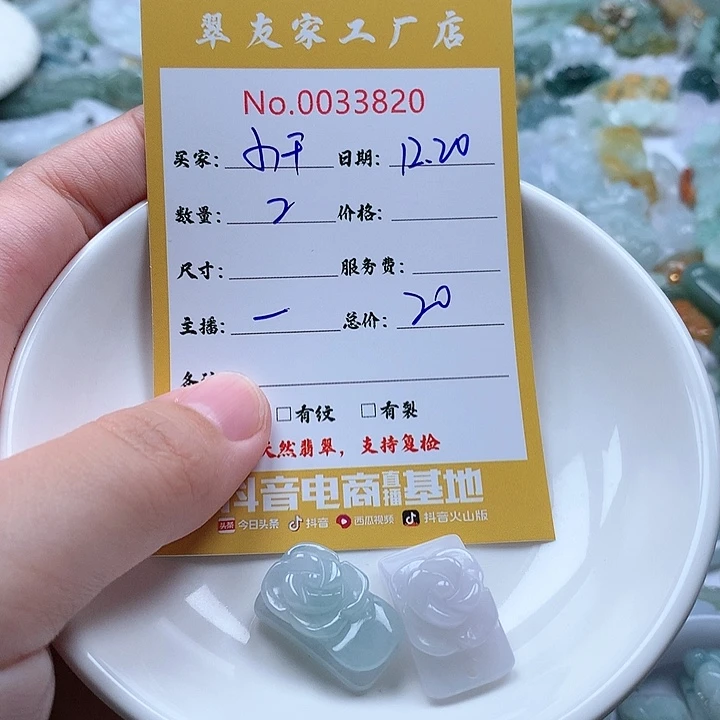 翠友家工厂店
No.0033820
买家： 日期：12.20
数量：2 价格：
尺寸： 服务费：
主播：一 总价：20
□有纹 □有裂
天然翡翠，支持复检
抖音电商直播基地
头条 今日头条 抖音 西瓜视频 抖音火山版